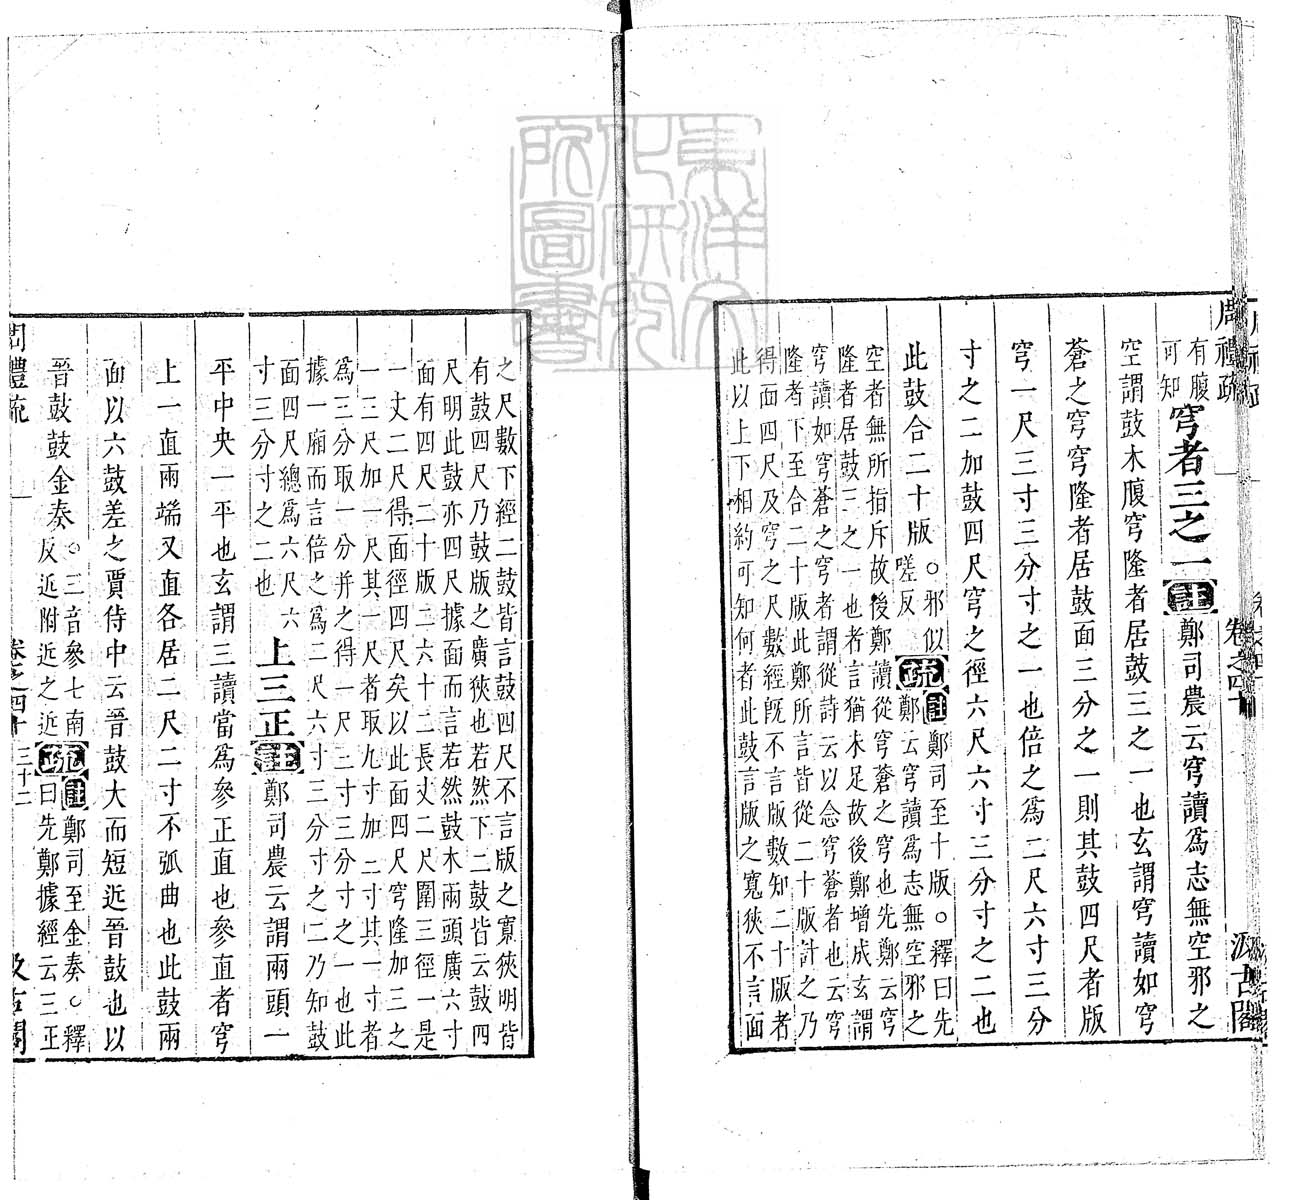 周禮疏 卷之四十 汲古閣
有腹
可知
穹者三之一註鄭司農云穹讀爲志無空邪之
空謂鼓木腹穹隆者居鼓三之一也玄謂穹讀如穹
蒼之穹穹隆者居鼓面三分之一則其鼓四尺者版
穹一尺三寸三分寸之一也倍之爲二尺六寸三分
寸之二加鼓四尺穹之徑六尺六寸三分寸之二也
此鼓合二十版
○邪似
嗟反
疏
註鄭司至十版○釋曰先
鄭云穹讀爲志無空邪之
空者無所指斥故後鄭讀從穹蒼之穹也先鄭云穹
隆者居鼓三之一也者言猶未足故後鄭增成玄謂
穹讀如穹蒼之穹者謂從詩云以念穹蒼者也云穹
隆者下至合二十版此鄭所言皆從二十版計之乃
得面四尺及穹之尺數經旣不言版數知二十版者
此以上下相約可知何者此鼓言版之寬狹不言面
之尺數下經二鼓皆言鼓四尺不言版之寬狹明皆
有鼓四尺乃鼓版之廣狹也若然下二鼓皆云鼓四
尺明此鼓亦四尺據面而言若然鼓木兩頭廣六寸
面有四尺二十版二六十二長丈二尺圍三徑一是
一丈二尺得面徑四尺矣以此面四尺穹隆加三之
一三尺加一尺其一尺者取九寸加三寸其一寸者
爲三分取一分并之得一尺三寸三分寸之一也此
據一廂而言倍之爲二尺六寸三分寸之二乃知鼓
面四尺總爲六尺六
寸三分寸之二也
上三正註鄭司農云謂兩頭一
平中央一平也玄謂三讀當爲參正直也參直者穹
上一直兩端又直各居二尺二寸不弧曲也此鼓兩
面以六鼓差之賈侍中云晉鼓大而短近晉鼓也以
晉鼓鼓金奏
○三音參七南
反近附近之近
疏
註鄭司至金奏○釋
曰先鄭據經云三正
周禮疏 卷之四十 三十二 汲古閣
東洋文化研究所圖書